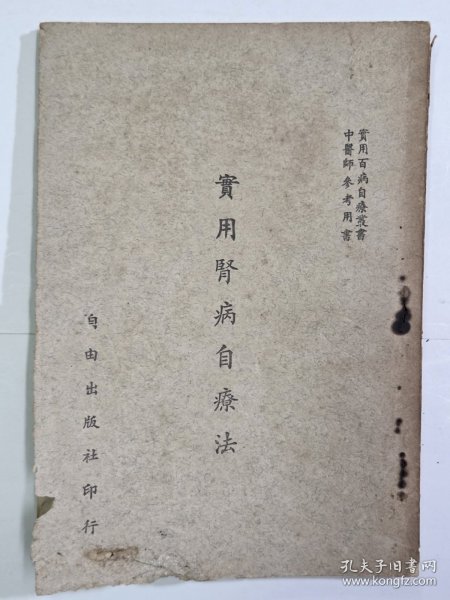 實用百病自療叢書
中醫師參考用書
實用腎病自療法
自由出版社印行
孔夫子旧书网
www.kongfz.com